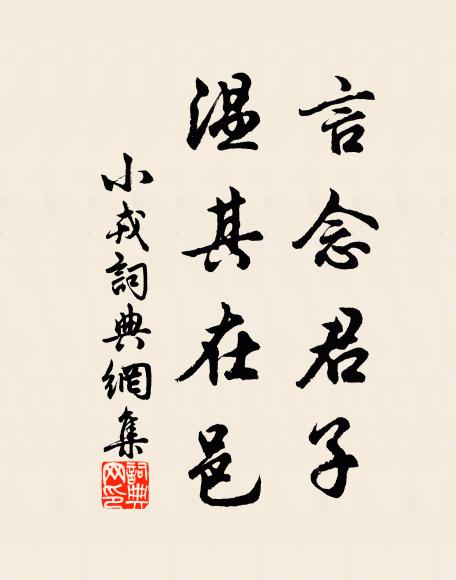 言念君子
温其在邑
小戎詞典網集
詞典
网印